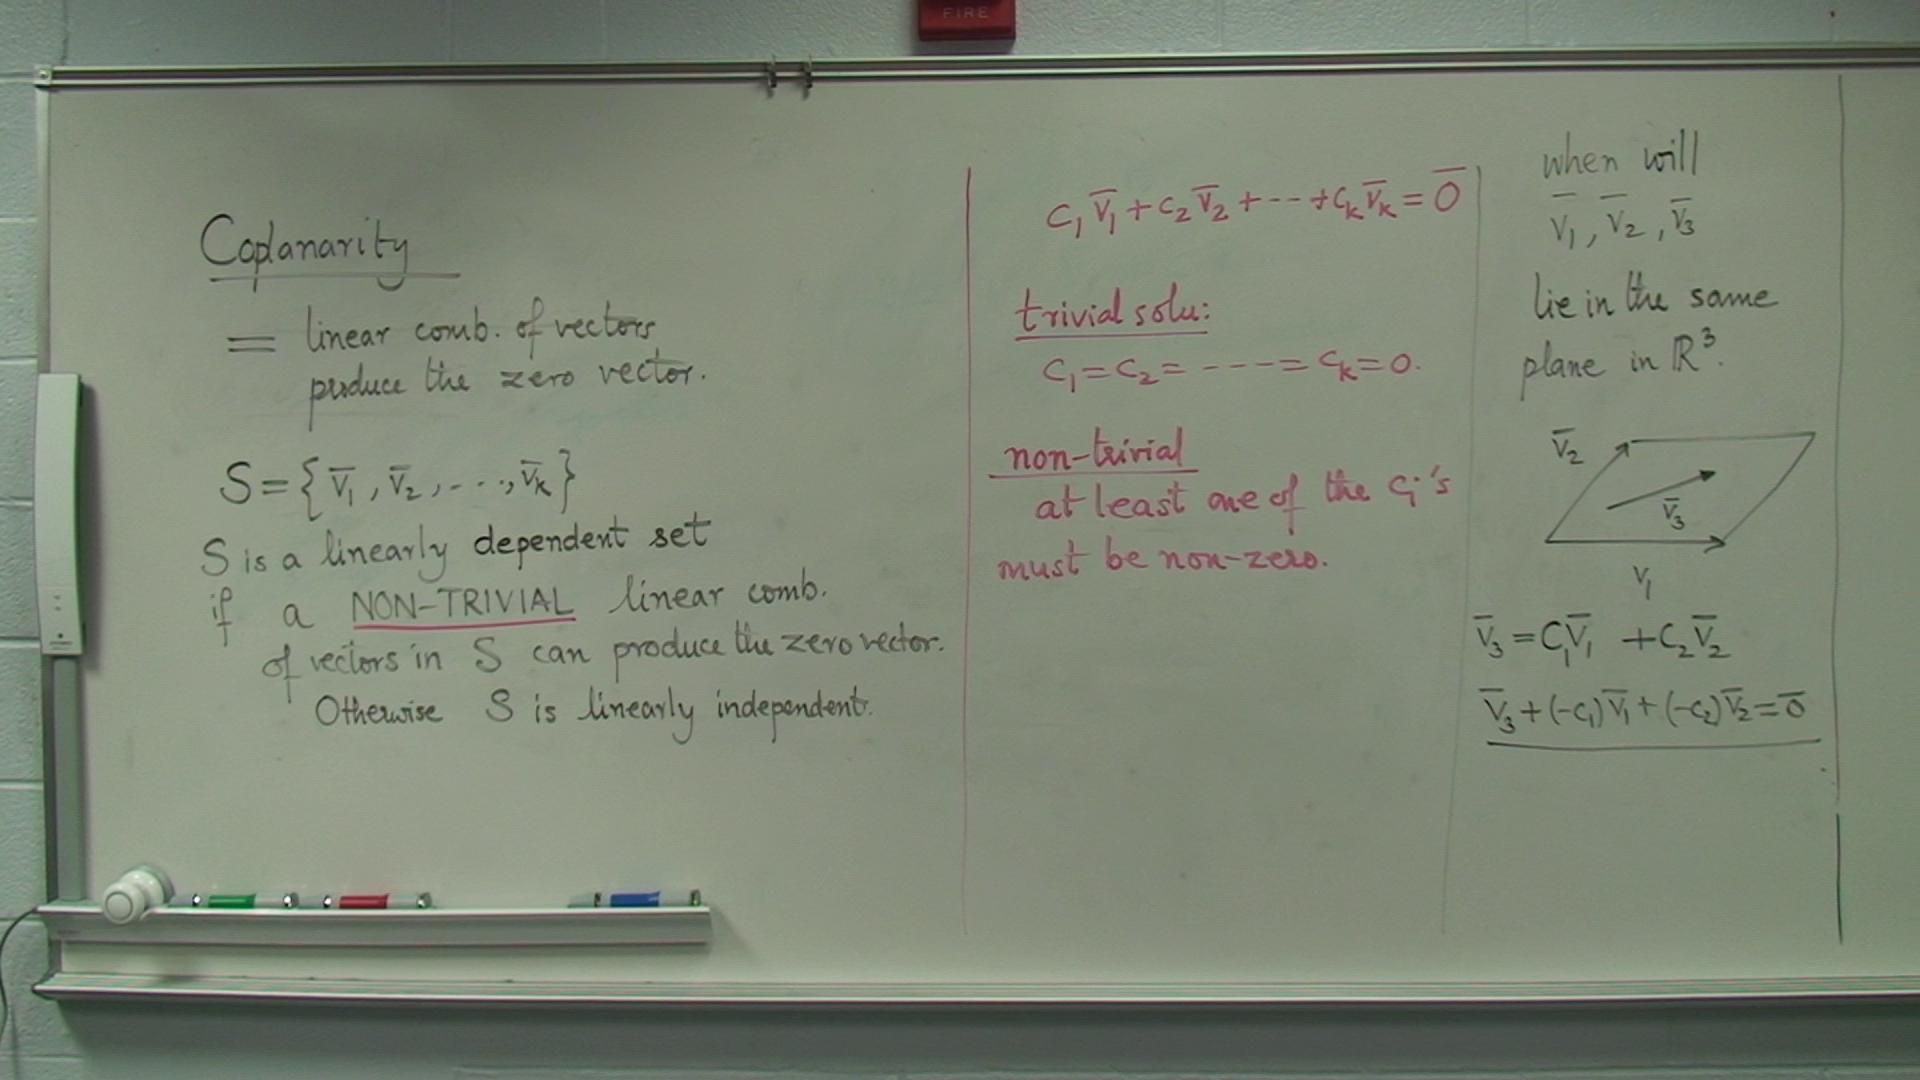 FIRE
Coplanarity
= linear comb. of vectors
produce the zero vector.
S = { v̅₁ , v̅₂ , - - . . , v̅ₖ }
S is a linearly dependent set
if a NON-TRIVIAL linear comb.
of vectors in S can produce the zero vector.
Otherwise S is linearly independent.
c₁ v̅₁ + c₂ v̅₂ + - - - + cₖ v̅ₖ = 0̅
trivial solu:
c₁ = c₂ = - - - - = cₖ = 0.
non-trivial
at least one of the cᵢ's
must be non-zero.
when will
v̅₁ , v̅₂ , v̅₃
lie in the same
plane in ℝ³.
v̅₂
v̅₃
v₁
v̅₃ = C₁v̅₁ + C₂v̅₂
v̅₃ + (-c₁)v̅₁ + (-c₂)v̅₂ = 0̅